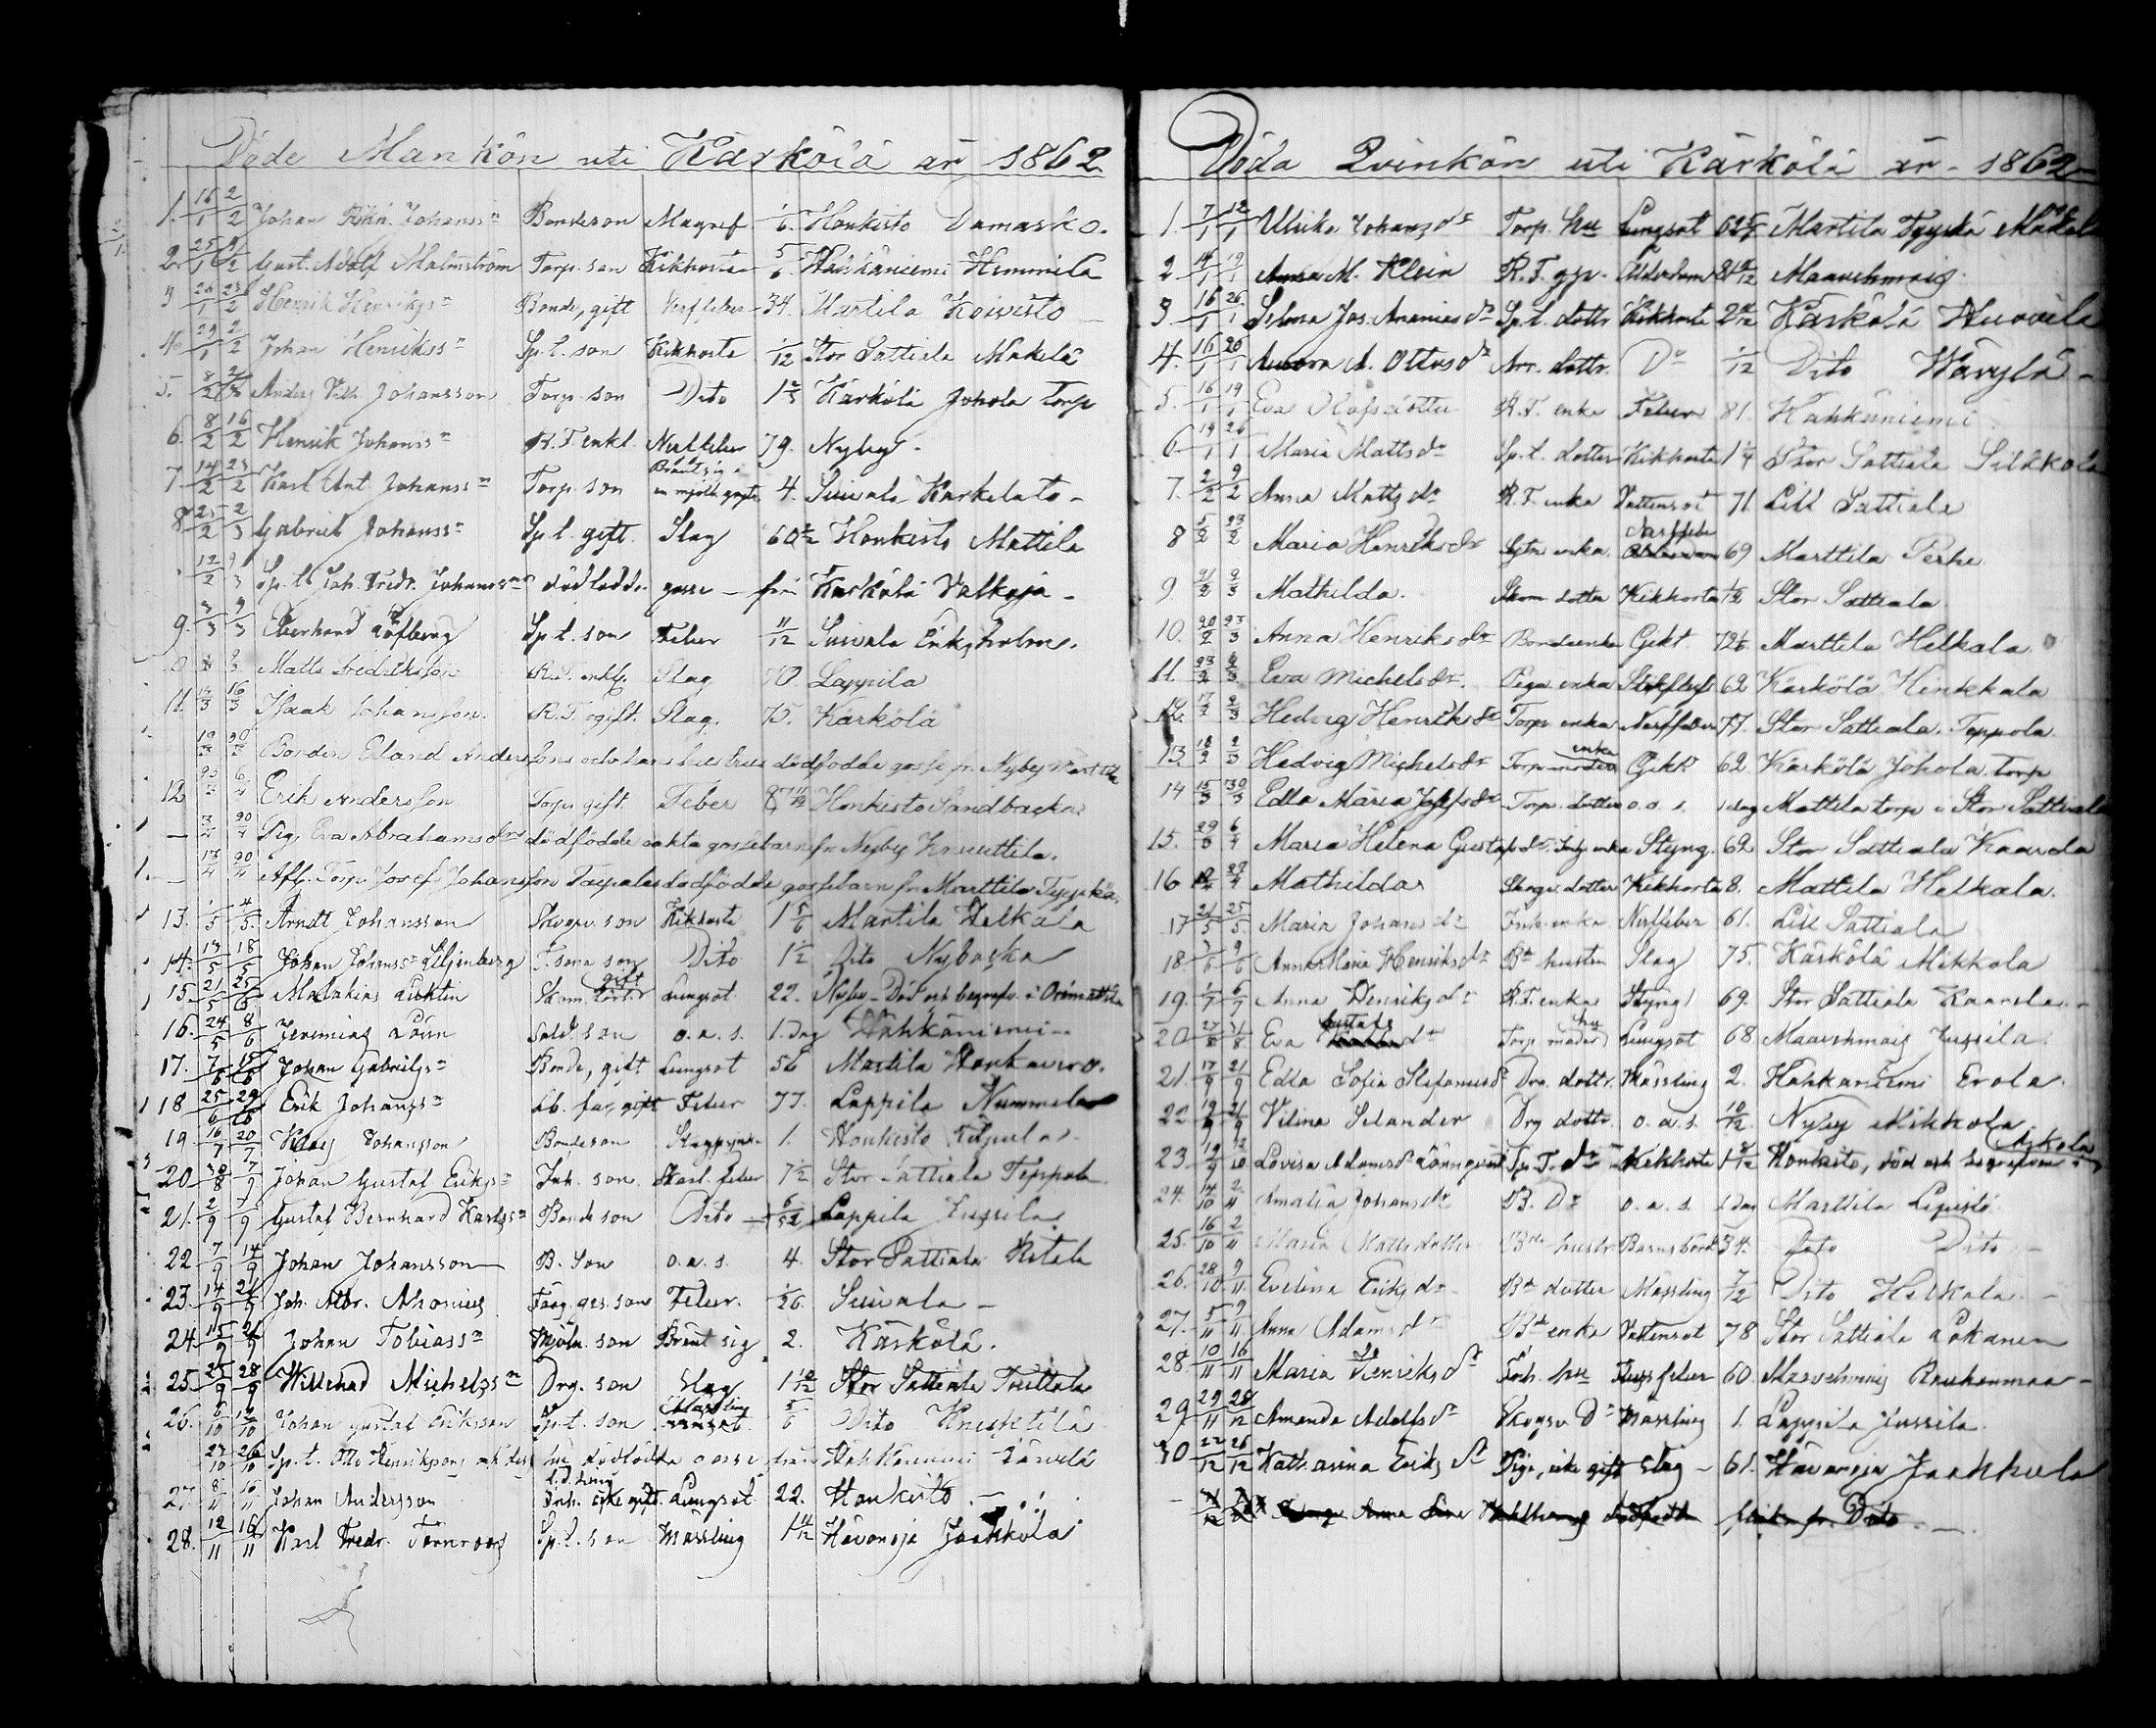 Döde Mankön uti Kärkölä år 1862
1. 16/1 2/2 Johan Johanss:n Bondeson Magref 1/6. Honkisto Damask o.
2. 25/1 2 Gust. Adolf Malmström Torp. son Kikhosta 5/6. Hähkäniemi Himmilä
3 26/1 23/2 Henrik Henrikss:n Bonde, gift Nerffeber 34. Martila Koivisto
4. 29/1 2/2 Johan Henrikss:n Sp.l. son Kikhosta 1/12 Stor Sattiala Mäkelä
5. 8/2 Anders Vilh. Johansson Torp. son Dito Kärkölä Johola torp
6. 8/2 16/2 Henrik Johanss:n R.F. enkl. Nerffeber 79. Nyby.
7 14/2 23/2 Karl Ant. Johanss:n Torp. son Bränt sig i en mjölk gryta 4. Suivala Karkelato -
8 25/2 2/3 Gabriel Johanss:n Sp.l. gift. Slag 60 Honkisto Mattila
12/2 9/3 Sp.l. Joh. Fredr. Johanss:ns dödfödde gosse - från Kärkölä Valkoja -
9. 3/3 9/3 Löfberg Sp.l. son Feber 11/12 Suivala Eriksholm.
10 9/3 Matts Fredriksson R.F. enkl. Slag 70. Lappila
11. 14/3 16/3 Isaak Johansson. R.F. ogift. Slag. 75. Kärkölä
19/3 30/3 Bonden Eland Anderssons och hans hustrus dödfödde gosse fr. Nyby
12 6/4 Erik Andersson Torp. gift Feber Honkisto Sandbacka
3/4 20/4 Pig. Eva Abrahamsd:rs dödfödde oäkta gossebarn fr. Nyby Knuuttila.
17/4 20/4 Afl. Torp. Josef Johansson Taipales dödfödde gossebarn fr. Marttila Tyyskä.
13. 1/5 4/5. Arndt Johansson Skogv. son Kikhosta 1 5/6 Martila Helkala
14. 13/5 18/5 Johan Johanss:n Liljenberg T. sons son Dito 1 1/2 Dito Nybacka
15. 21/5 25/5 Malakias Luktin gift Lungsot 22. Nyby - Död och begrafv. i Orimattila
16. 24/5 8/6 Jeremias Lönn Sold. son o.a.s. 1. Dag Hähkäniemi -
17. 7/6 15/6 Johan Gabrielss:n Bonde, gift Lungsot 56 Martila Honkavuro.
18 25/6 29/6 Erik Johanss:n Sb. far, gift Feber 77. Lappila Nummela
19. 16/7 20/7 Klas Johansson Bondeson 1. Honkisto Eljula.
20 30/8 7/9 Johan Gustaf Erikss:n Inh. son. Skarl. feber 7 1/2 Stor Sattiala Teppola.
21. 2/9 7/9 Gustaf Bernhard Karlss:n Bonde son Dito - 6/52 Lappila Jussila.
22 7/9 14/9 Johan Johansson B. Son o.a.s. 4. Stor Sattiala Retala
23. 14/9 21/9 Joh. Albr. Ahonius Färg. ges. son Feber. 1/26. Suivala -
24 15/9 21/9 Johan Tobiass:n Mjöln. son Bränt sig 2. Kärkölä.
25. 25/9 28/9 Willehad Michelss:n Drg. son Slag 1 10/12 Stor Sattiala Truttala
26. 6/10 12/10 Johan Gustaf Eriksson Sp.l. son Mässling 5/6 Dito Knuktilä
27/10 26/10 Sp.l. Otto Henrikssons och dess hu dödfödda gosse från Hähkäniemi Järvelä
27. 8/11 16/11 Johan Andersson Inh. icke gift. Lungsot. 22. Honkisto. -
28. 12/11 16/11 Karl Fredr. Törnroos Sp.l. son Mässling 1 4/12 Hävonoja Jaakkola
Döda Qvinkön uti Kärkölä år - 1862
1. 7/1 12/1 Ulrika Johansd:r Torp. hu Lungsot 62 Martila Tyyskä Mäkelä
2 14/1 19/1 Anna M. Klein R.F. gju. Ålderdom 81 Maavehmais.
3 16/1 26/1 Selma Jos. Ananiasd:r Sp.l. dottr Kikhosta 2 Kärkölä Huovila
4. 16/1 20/1 Aurora A. Ottosd:r Arr. dottr. D:o 1/12 Dito Wäryla -
5. 16/1 19/1 Eva Olofsdotter R.F. enka Feber 81. Hahkäniemi
6 19/1 26/1 Maria Mattsd:r Sp.l. dotter Kikhosta 1 1/4 Stor Sattiala Sillkola
7. 2/2 9/2 Anna Mattsd:r R.F. enka Vattensot 71 Lill Sattiala
8 5/2 23/2 Maria Henriksd:r enka. Nerffeber 69 Marttila Perhe.
9 21/2 2/3 Mathilda. Skom dotter Kikhosta 1/2 Stor Sattiala.
10. 20/2 23/3 Anna Henriksd:r Bondeenka Gikt 72 Marttila Helkala.
11. 23/2 2/3 Eva Michelsd:r. Piga enka 62 Kärkölä Hinkkala
12. 17/2 2/3 Hedvig Henriksd:r Torp enka Nerffeber 77. Stor Sattiala. Teppola.
13. 18/2 2/3 Hedvig Michelsd:r Torp. enka Gikt 62 Kärkölä Johola torp
14 15/3 30/3 Edla Maria Josefsd:r Torp. dotter o.a.s. 1 dag Mattila torp i Stor Sattiala
15. 29/3 6/4 Maria Helena Gustafsd:r Inh. enka Styng. 62 Stor Sattiala Kaarela
16 27/4 Mathilda Skogv. dotter Kikhosta 8. Mattila Helkala.
17 21/5 25/5. Maria Johansd:r Inh. enka Nerffeber 61. Lill Sattiala
18. 3/6 9/6 Anna Maria Henriksd:r B:de hustru Slag 75. Kärkölä Mikkola
19. 1/7 6/7 Anna Henriksd:r R.F. enka Styng 69. Stor Sattiala Kaarela -
20 27/8 31/8 Eva Gustafsd:r Torp. hu Lungsot 68 Maavehmais Jussila
21. 17/9 21/9 Edla Sofia Stefanusd:r Drg. dottr. Mässling 2. Hähkäniemi Erola.
22 19/9 21/9 Vilina Selander Drg dottr. o.a.s. 10/12. Nyby Mikkola
23. 19/9 12/10 Lovisa Adamsd:r Lönnqvist Sp. T. d:r Kikhosta 1 8/12 Honkisto, död och begrafven i Askola
24. 14/10 2/11 Amalia Johansd:r B. D:r o.a.s. 1 Dag Marttila Lepistö
25. 16/10 2/11 Maria Mattsdotter B:de hustr. Barnsbörd 34. Dito Dito
26. 28/10 9/11 Evelina Eriksd:r B:de dotter Mässling 7/12 Dito Helkala. -
27. 5/11 9/11 Anna Adamsd:r B:de enka Vattensot 78 Stor Sattiala Lokanen
28. 10/11 16/11 Maria Henriksd:r Inh. hu feber 60. Maavehmais Rauhanmaa -
29 29/11 28/12 Amanda Adolfsd:r Skogsv. D:r Mässling 1. Lappila Jussila.
30 22/12 26/12 Katharina Eriksd:r Piga, icke gift Slag - 61. Hävonoja Jaakkola
Anna dödfödt fr. Dito - -